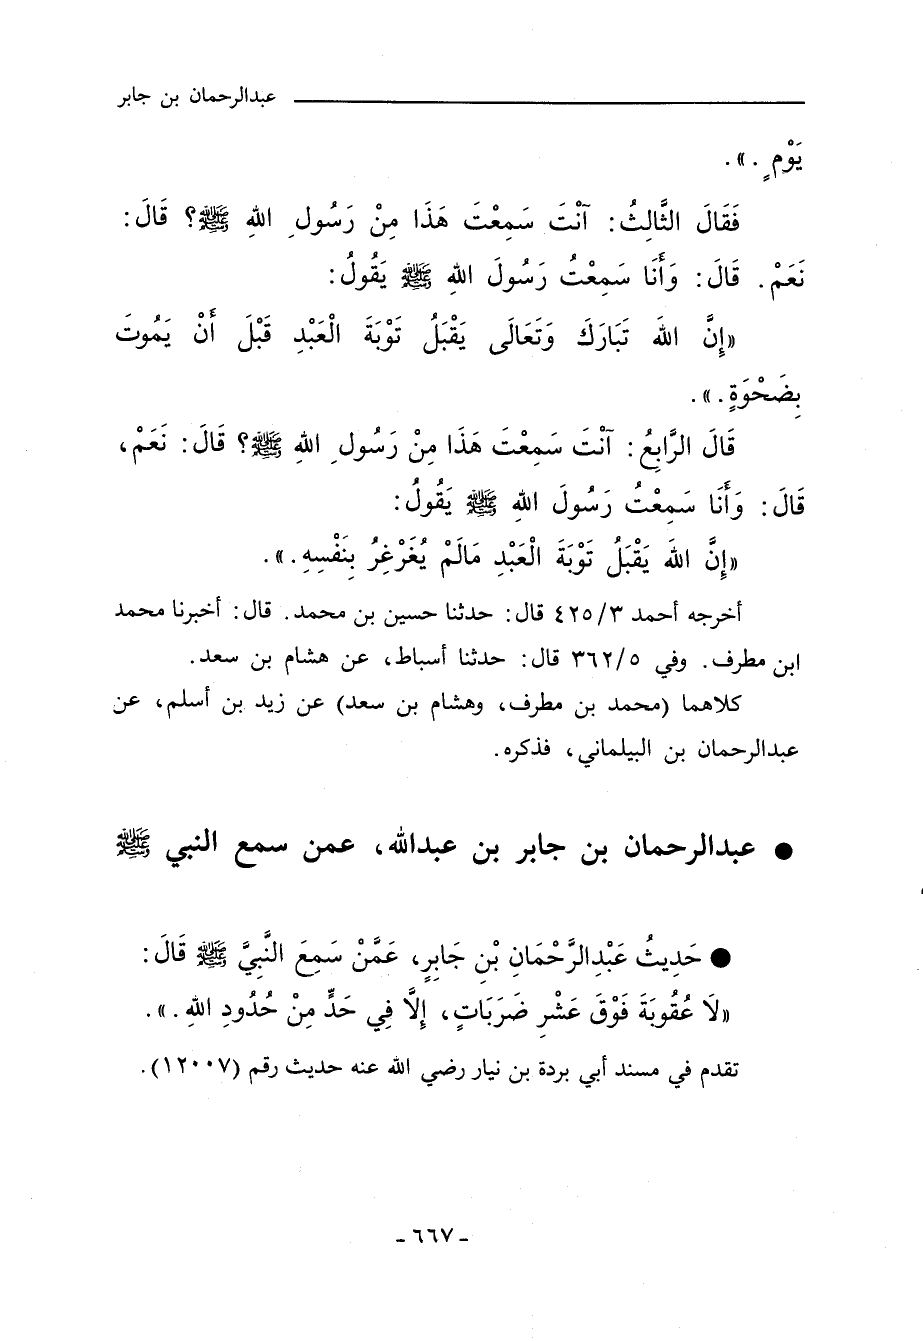 عبدالرحمان بن جابر
يَوْمٍ . » .
فَقَالَ الثَّالِثُ : آنْتَ سَمِعْتَ هَذَا مِنْ رَسُولِ اللهِ ﷺ؟ قَالَ :
نَعَمْ . قَالَ : وَأَنَا سَمِعْتُ رَسُولَ اللهِ ﷺ يَقُولُ :
« إِنَّ اللهَ تَبَارَكَ وَتَعَالَى يَقْبَلُ تَوْبَةَ الْعَبْدِ قَبْلَ أَنْ يَمُوتَ
بِضَحْوَةٍ . » .
قَالَ الرَّابِعُ : آنْتَ سَمِعْتَ هَذَا مِنْ رَسُولِ اللهِ ﷺ؟ قَالَ : نَعَمْ ،
قَالَ : وَأَنَا سَمِعْتُ رَسُولَ اللهِ ﷺ يَقُولُ :
« إِنَّ اللهَ يَقْبَلُ تَوْبَةَ الْعَبْدِ مَالَمْ يُغَرْغِرُ بِنَفْسِهِ . » .
أخرجه أحمد ٤٢٥/٣ قال : حدثنا حسين بن محمد . قال : أخبرنا محمد
ابن مطرف . وفي ٣٦٢/٥ قال : حدثنا أسباط ، عن هشام بن سعد .
كلاهما (محمد بن مطرف ، وهشام بن سعد) عن زيد بن أسلم ، عن
عبدالرحمان بن البيلماني ، فذكره .
● عبدالرحمان بن جابر بن عبدالله ، عمن سمع النبي ﷺ
● حَدِيثُ عَبْدِالرَّحْمَانِ بْنِ جَابِرٍ ، عَمَّنْ سَمِعَ النَّبِيَّ ﷺ قَالَ :
« لَا عُقُوبَةَ فَوْقَ عَشْرِ ضَرَبَاتٍ ، إِلَّا فِي حَدٍّ مِنْ حُدُودِ اللهِ . » .
تقدم في مسند أبي بردة بن نيار رضي الله عنه حديث رقم (١٢٠٠٧) .
- ٦٦٧ -